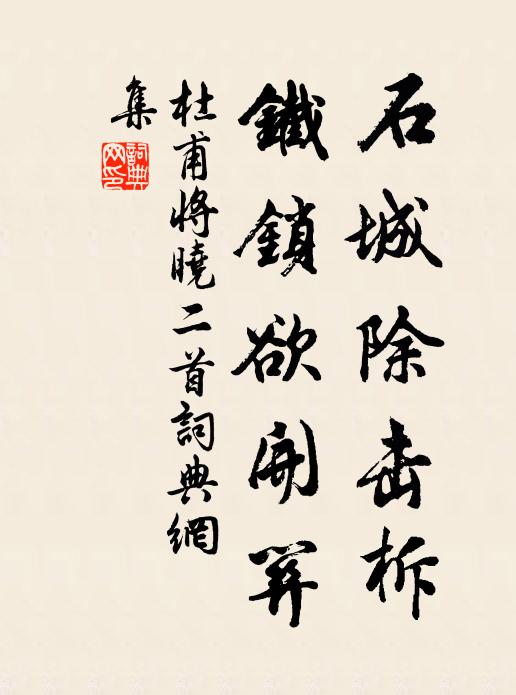 石城除击柝
鐵鎖欲開關
杜甫將曉二首詞典網
集
詞典
网印